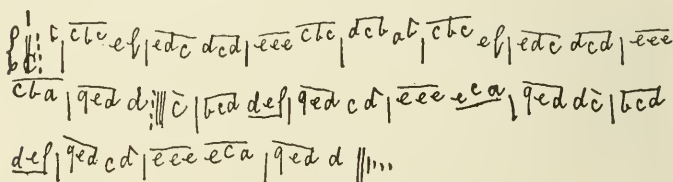 c̄ | cbc ef | edc dcd | eee cbc | dcb at | cbc ef | edc dcd | eee
cba | ged d c | bcd def | ged cd | eee eca | ged dc | bcd
def | ged cd | eee eca | ged d